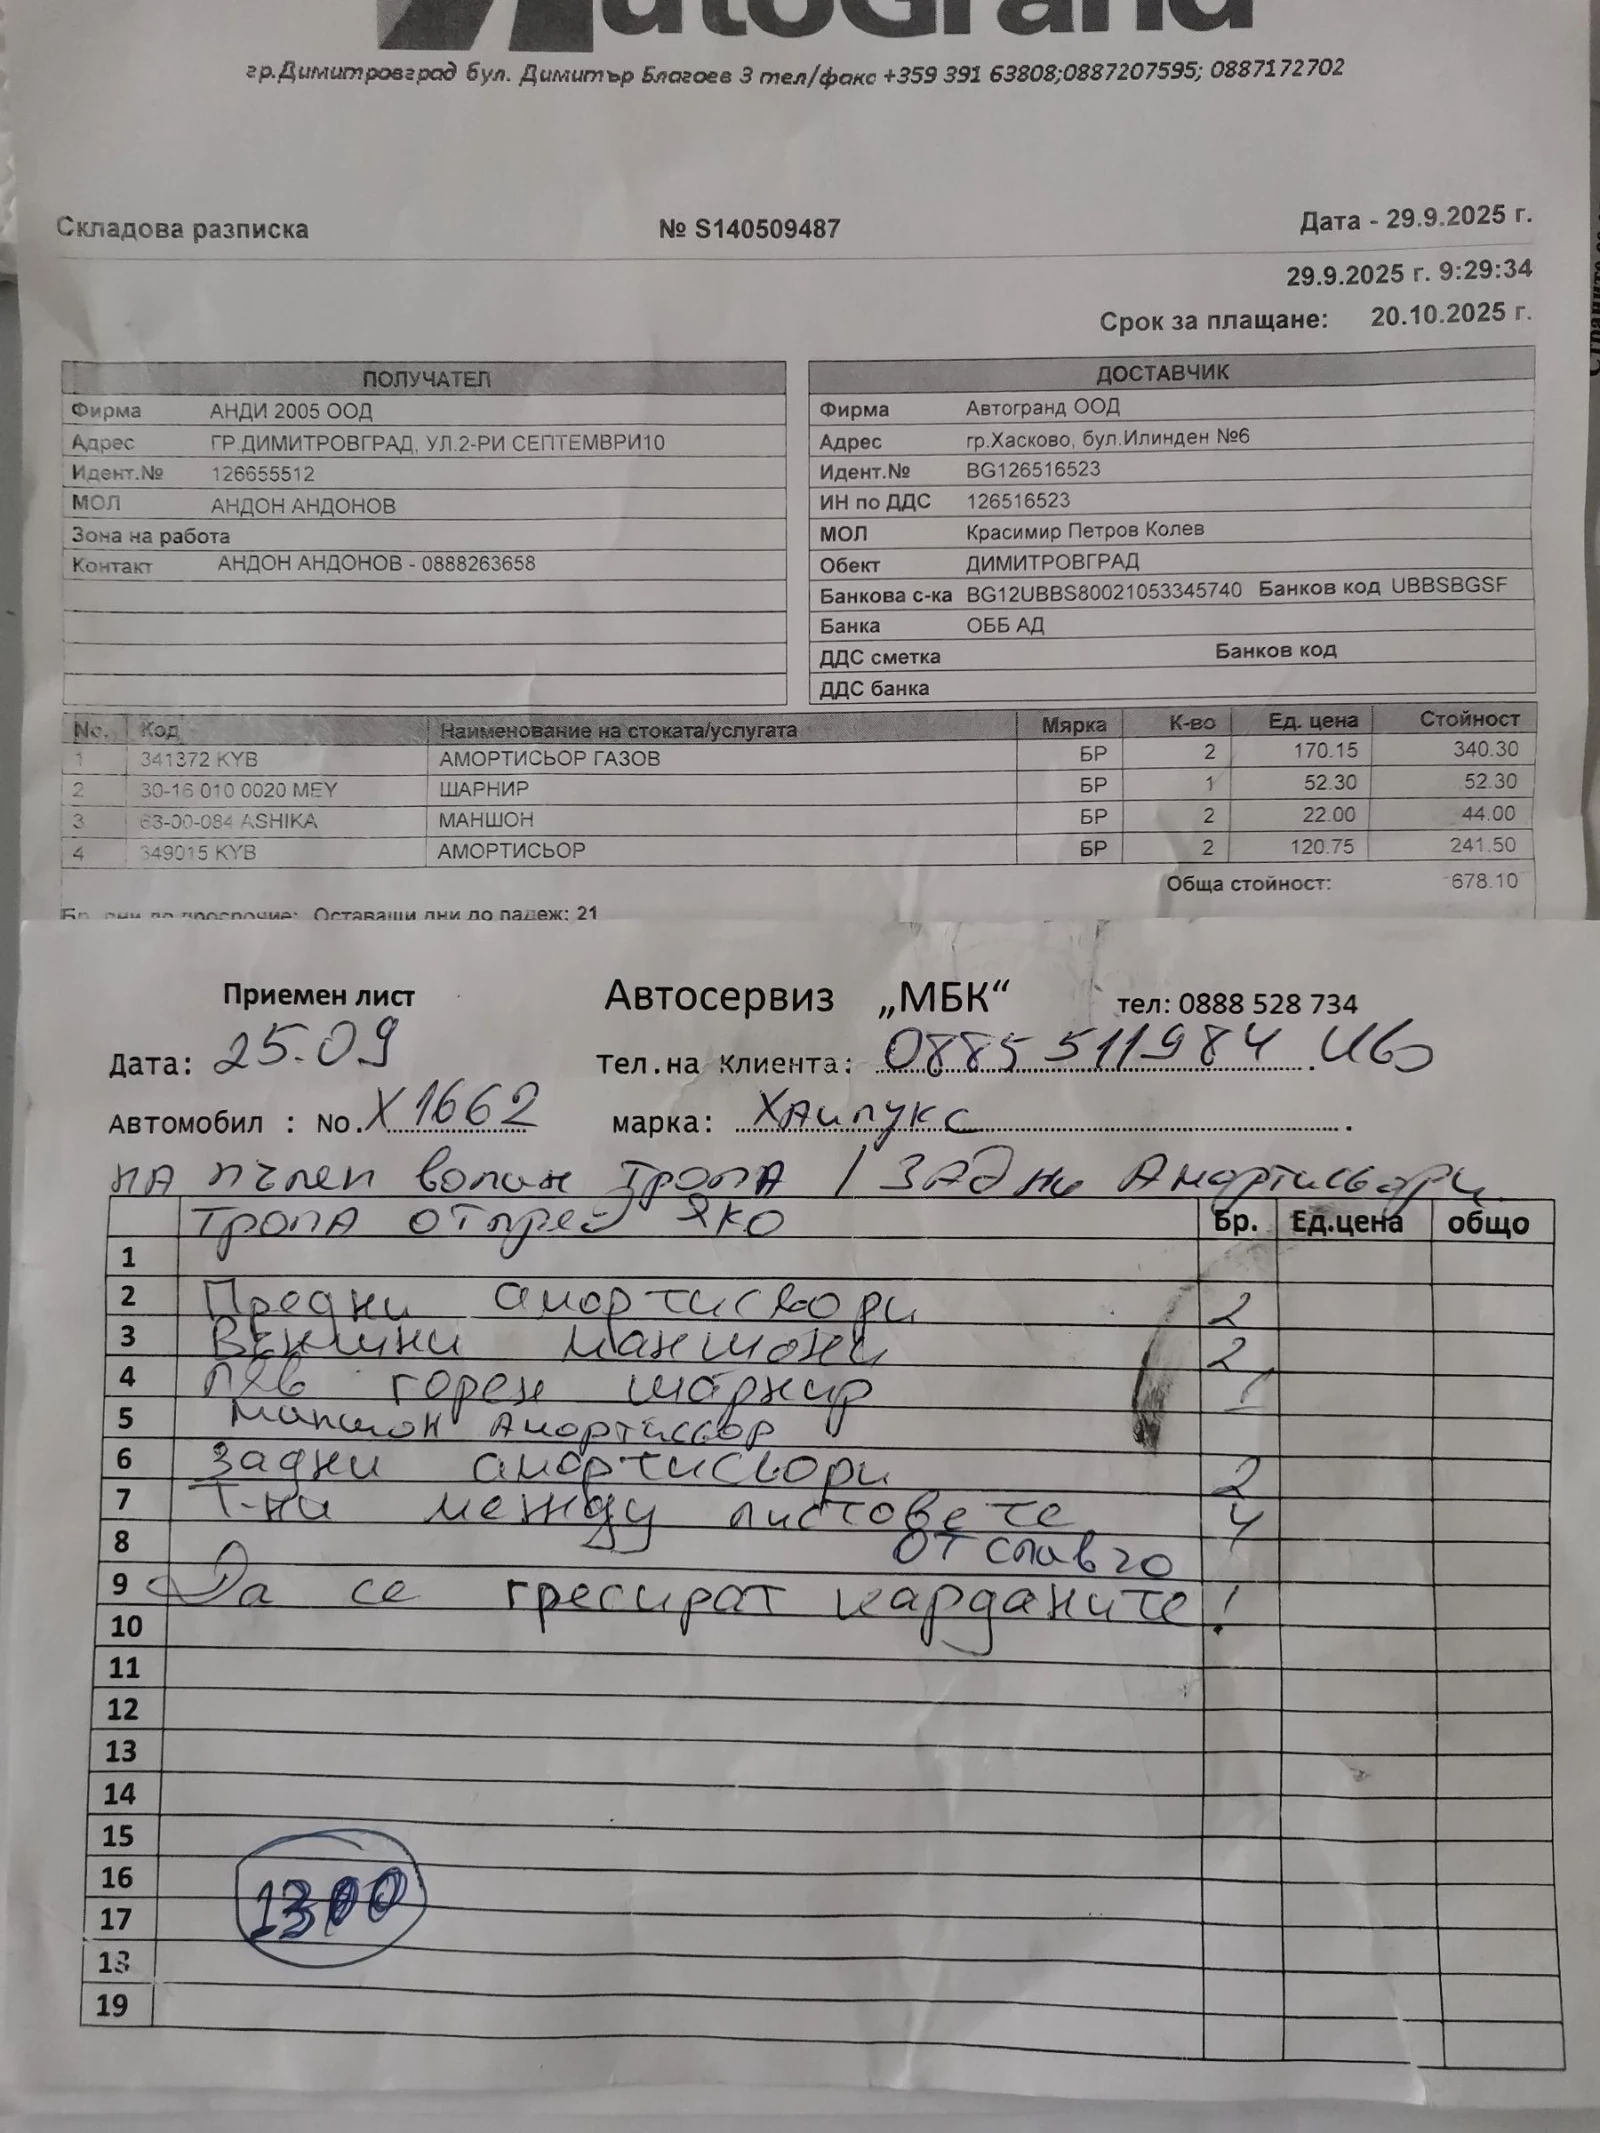 AutoGrand
гр.Димитровград бул. Димитър Благоев 3 тел/факс +359 391 63808;0887207595; 0887172702
Складова разписка № S140509487 Дата - 29.9.2025 г.
29.9.2025 г. 9:29:34
Срок за плащане: 20.10.2025 г.
ПОЛУЧАТЕЛ
Фирма АНДИ 2005 ООД
Адрес ГР.ДИМИТРОВГРАД, УЛ.2-РИ СЕПТЕМВРИ10
Идент.№ 126655512
МОЛ АНДОН АНДОНОВ
Зона на работа
Контакт АНДОН АНДОНОВ - 0888263658
ДОСТАВЧИК
Фирма Автогранд ООД
Адрес гр.Хасково, бул.Илинден №6
Идент.№ BG126516523
ИН по ДДС 126516523
МОЛ Красимир Петров Колев
Обект ДИМИТРОВГРАД
Банкова с-ка BG12UBBS80021053345740 Банков код UBBSBGSF
Банка ОББ АД
ДДС сметка Банков код
ДДС банка
No. Код Наименование на стоката/услугата Мярка К-во Ед. цена Стойност
1 341372 KYB АМОРТИСЬОР ГАЗОВ БР 2 170.15 340.30
2 30-16 010 0020 MEY ШАРНИР БР 1 52.30 52.30
3 63-00-084 ASHIKA МАНШОН БР 2 22.00 44.00
4 349015 KYB АМОРТИСЬОР БР 2 120.75 241.50
Обща стойност: 678.10
Бр. дни до просрочие: Оставащи дни до падеж: 21
Приемен лист Автосервиз „МБК“ тел: 0888 528 734
Дата: 25.09 Тел.на Клиента: 0885 511984. Иво
Автомобил : No. Х1662 марка: Хайлукс
НА пълен волан Тропа / ЗАДни Амортисьори
Тропа отпред Яко Бр. Ед.цена общо
1
2 Предни амортисьори 2
3 Външни маншони 2
4 Ляв горен шарнир 1
5 Маншон Амортисьор
6 Задни амортисьори 2
7 Т-ни между листовете 4
8 от славчо
9 Да се гресират карданите !
10
11
12
13
14
15
16
17 1300
18
19